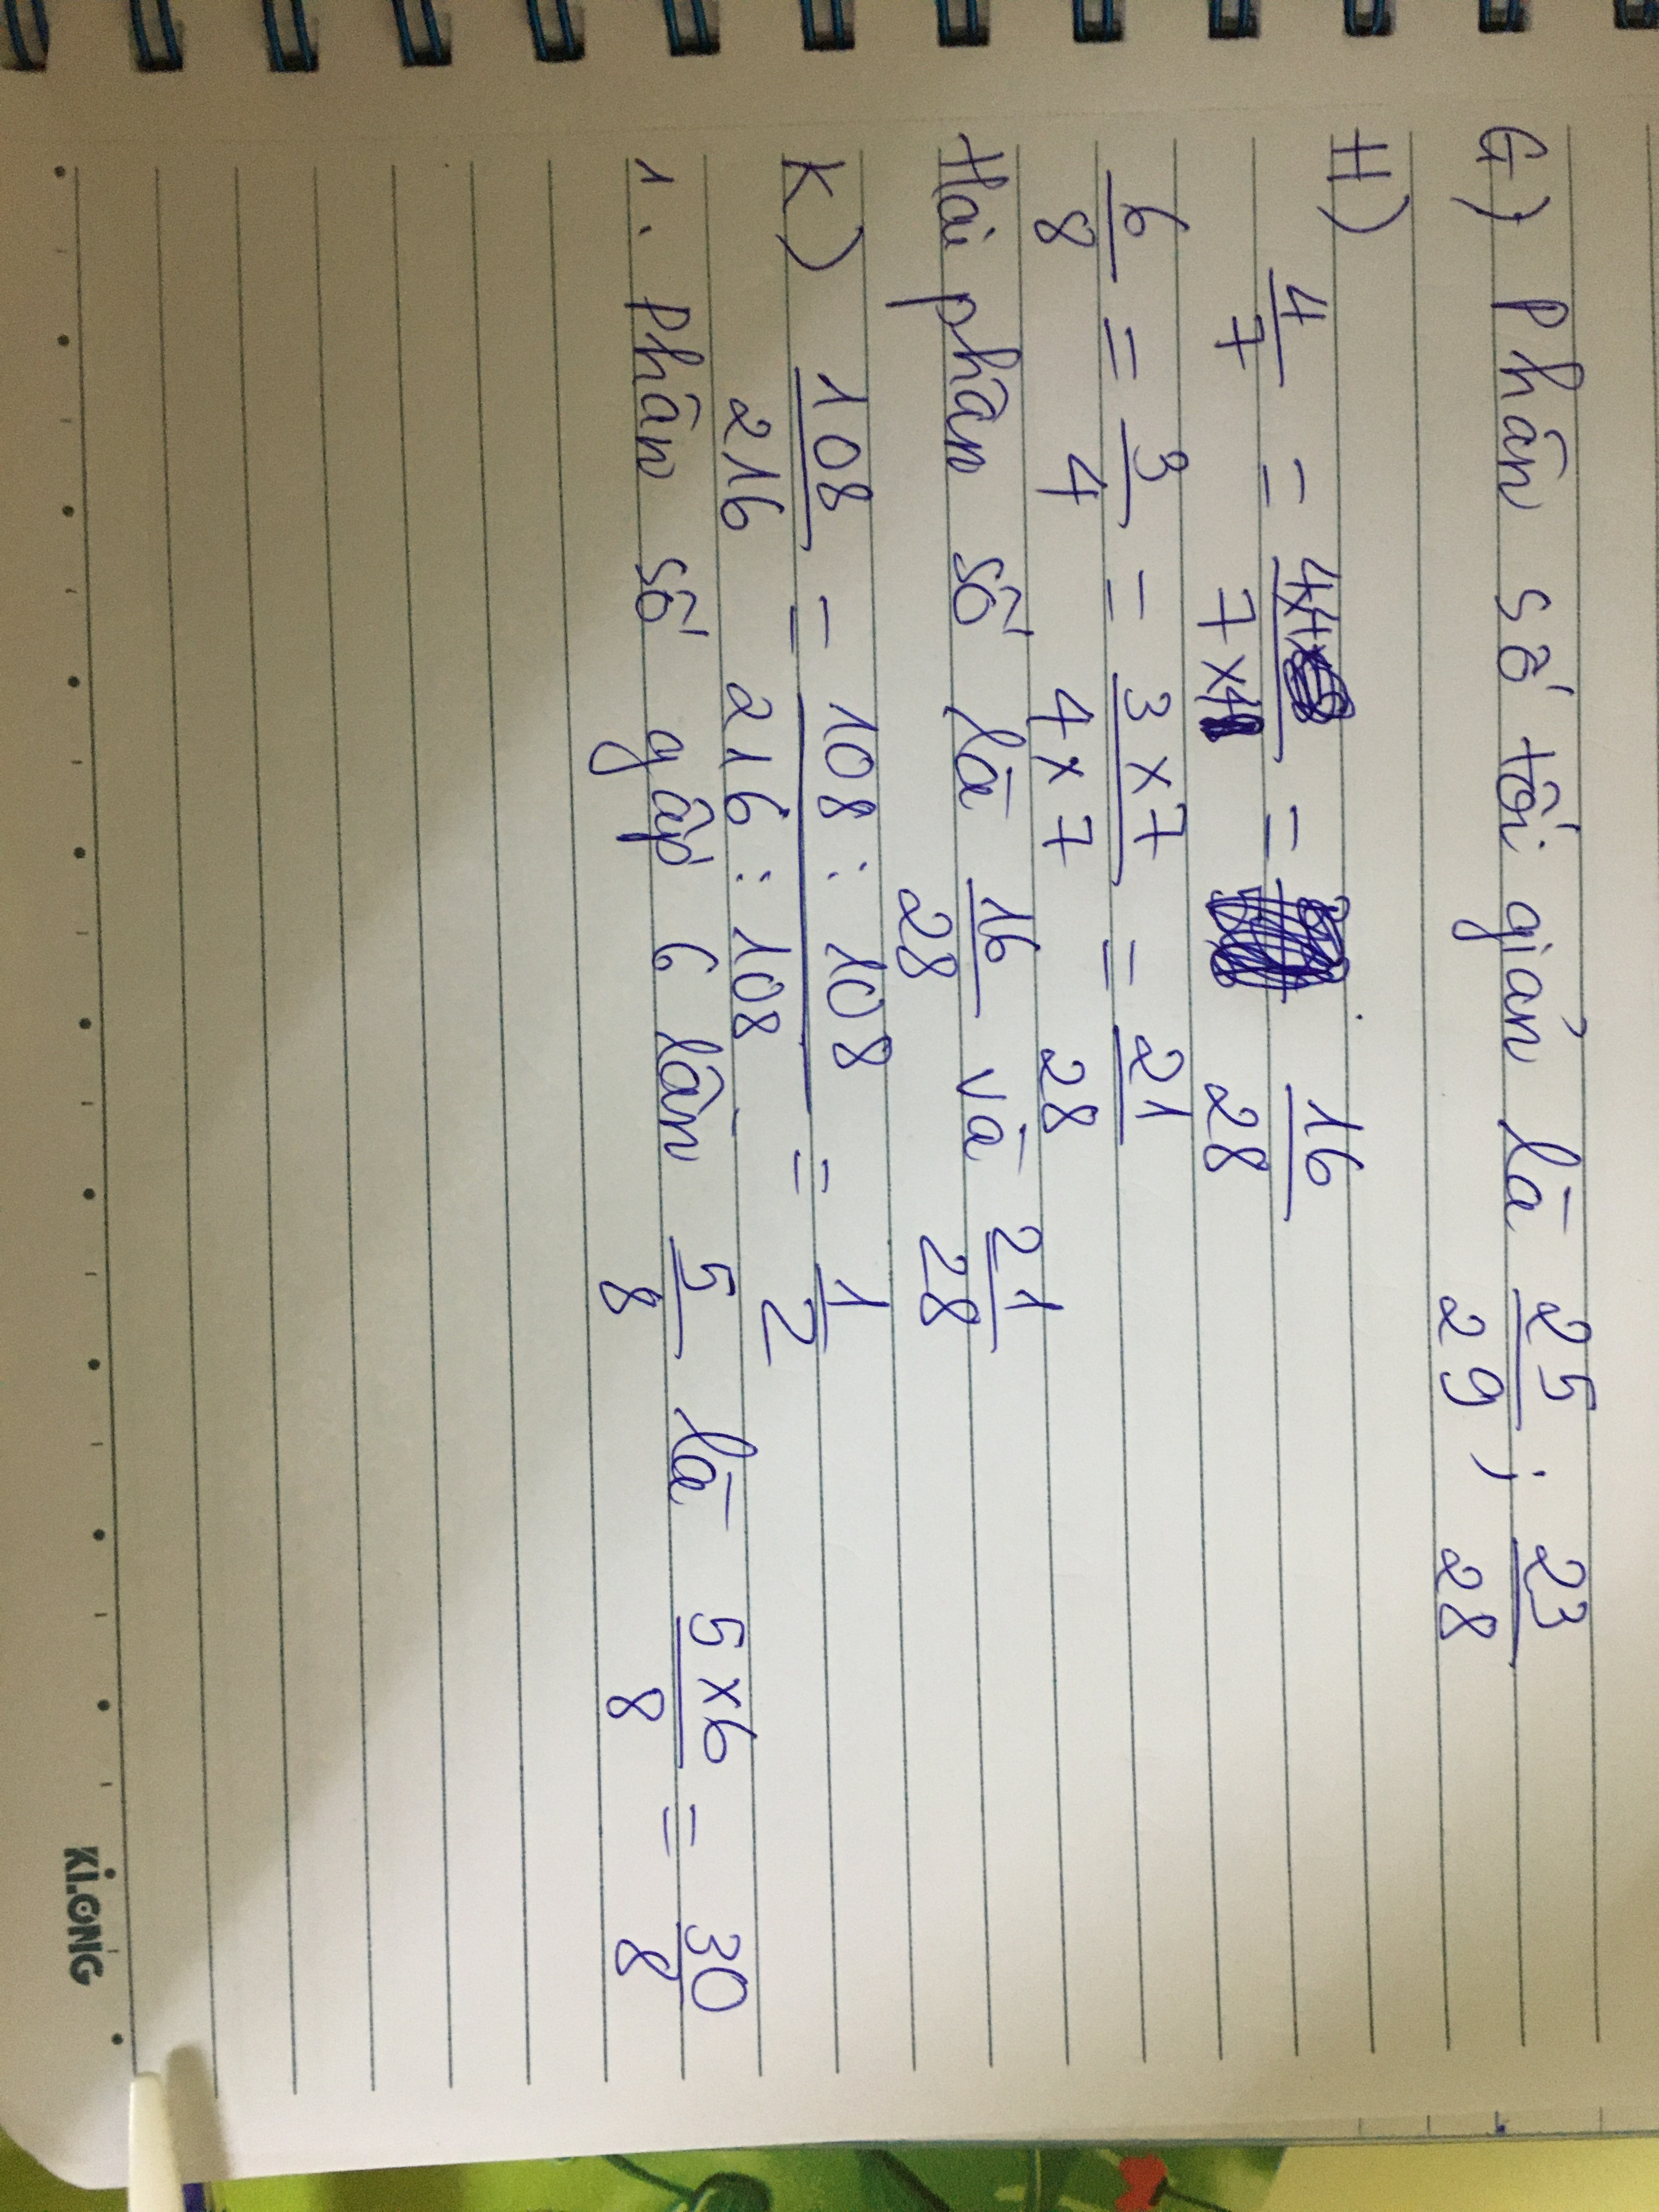 G) Phân số tối giản là 25/29 ; 23/28
H) 4/7 = 4x4/7x4 = 16/28
6/8 = 3/4 = 3x7/4x7 = 21/28
Hai phân số là 16/28 và 21/28
K) 108/216 = 108:108/216:108 = 1/2
1. Phân số gấp 6 lần 5/8 là 5x6/8 = 30/8
Ki.ONG